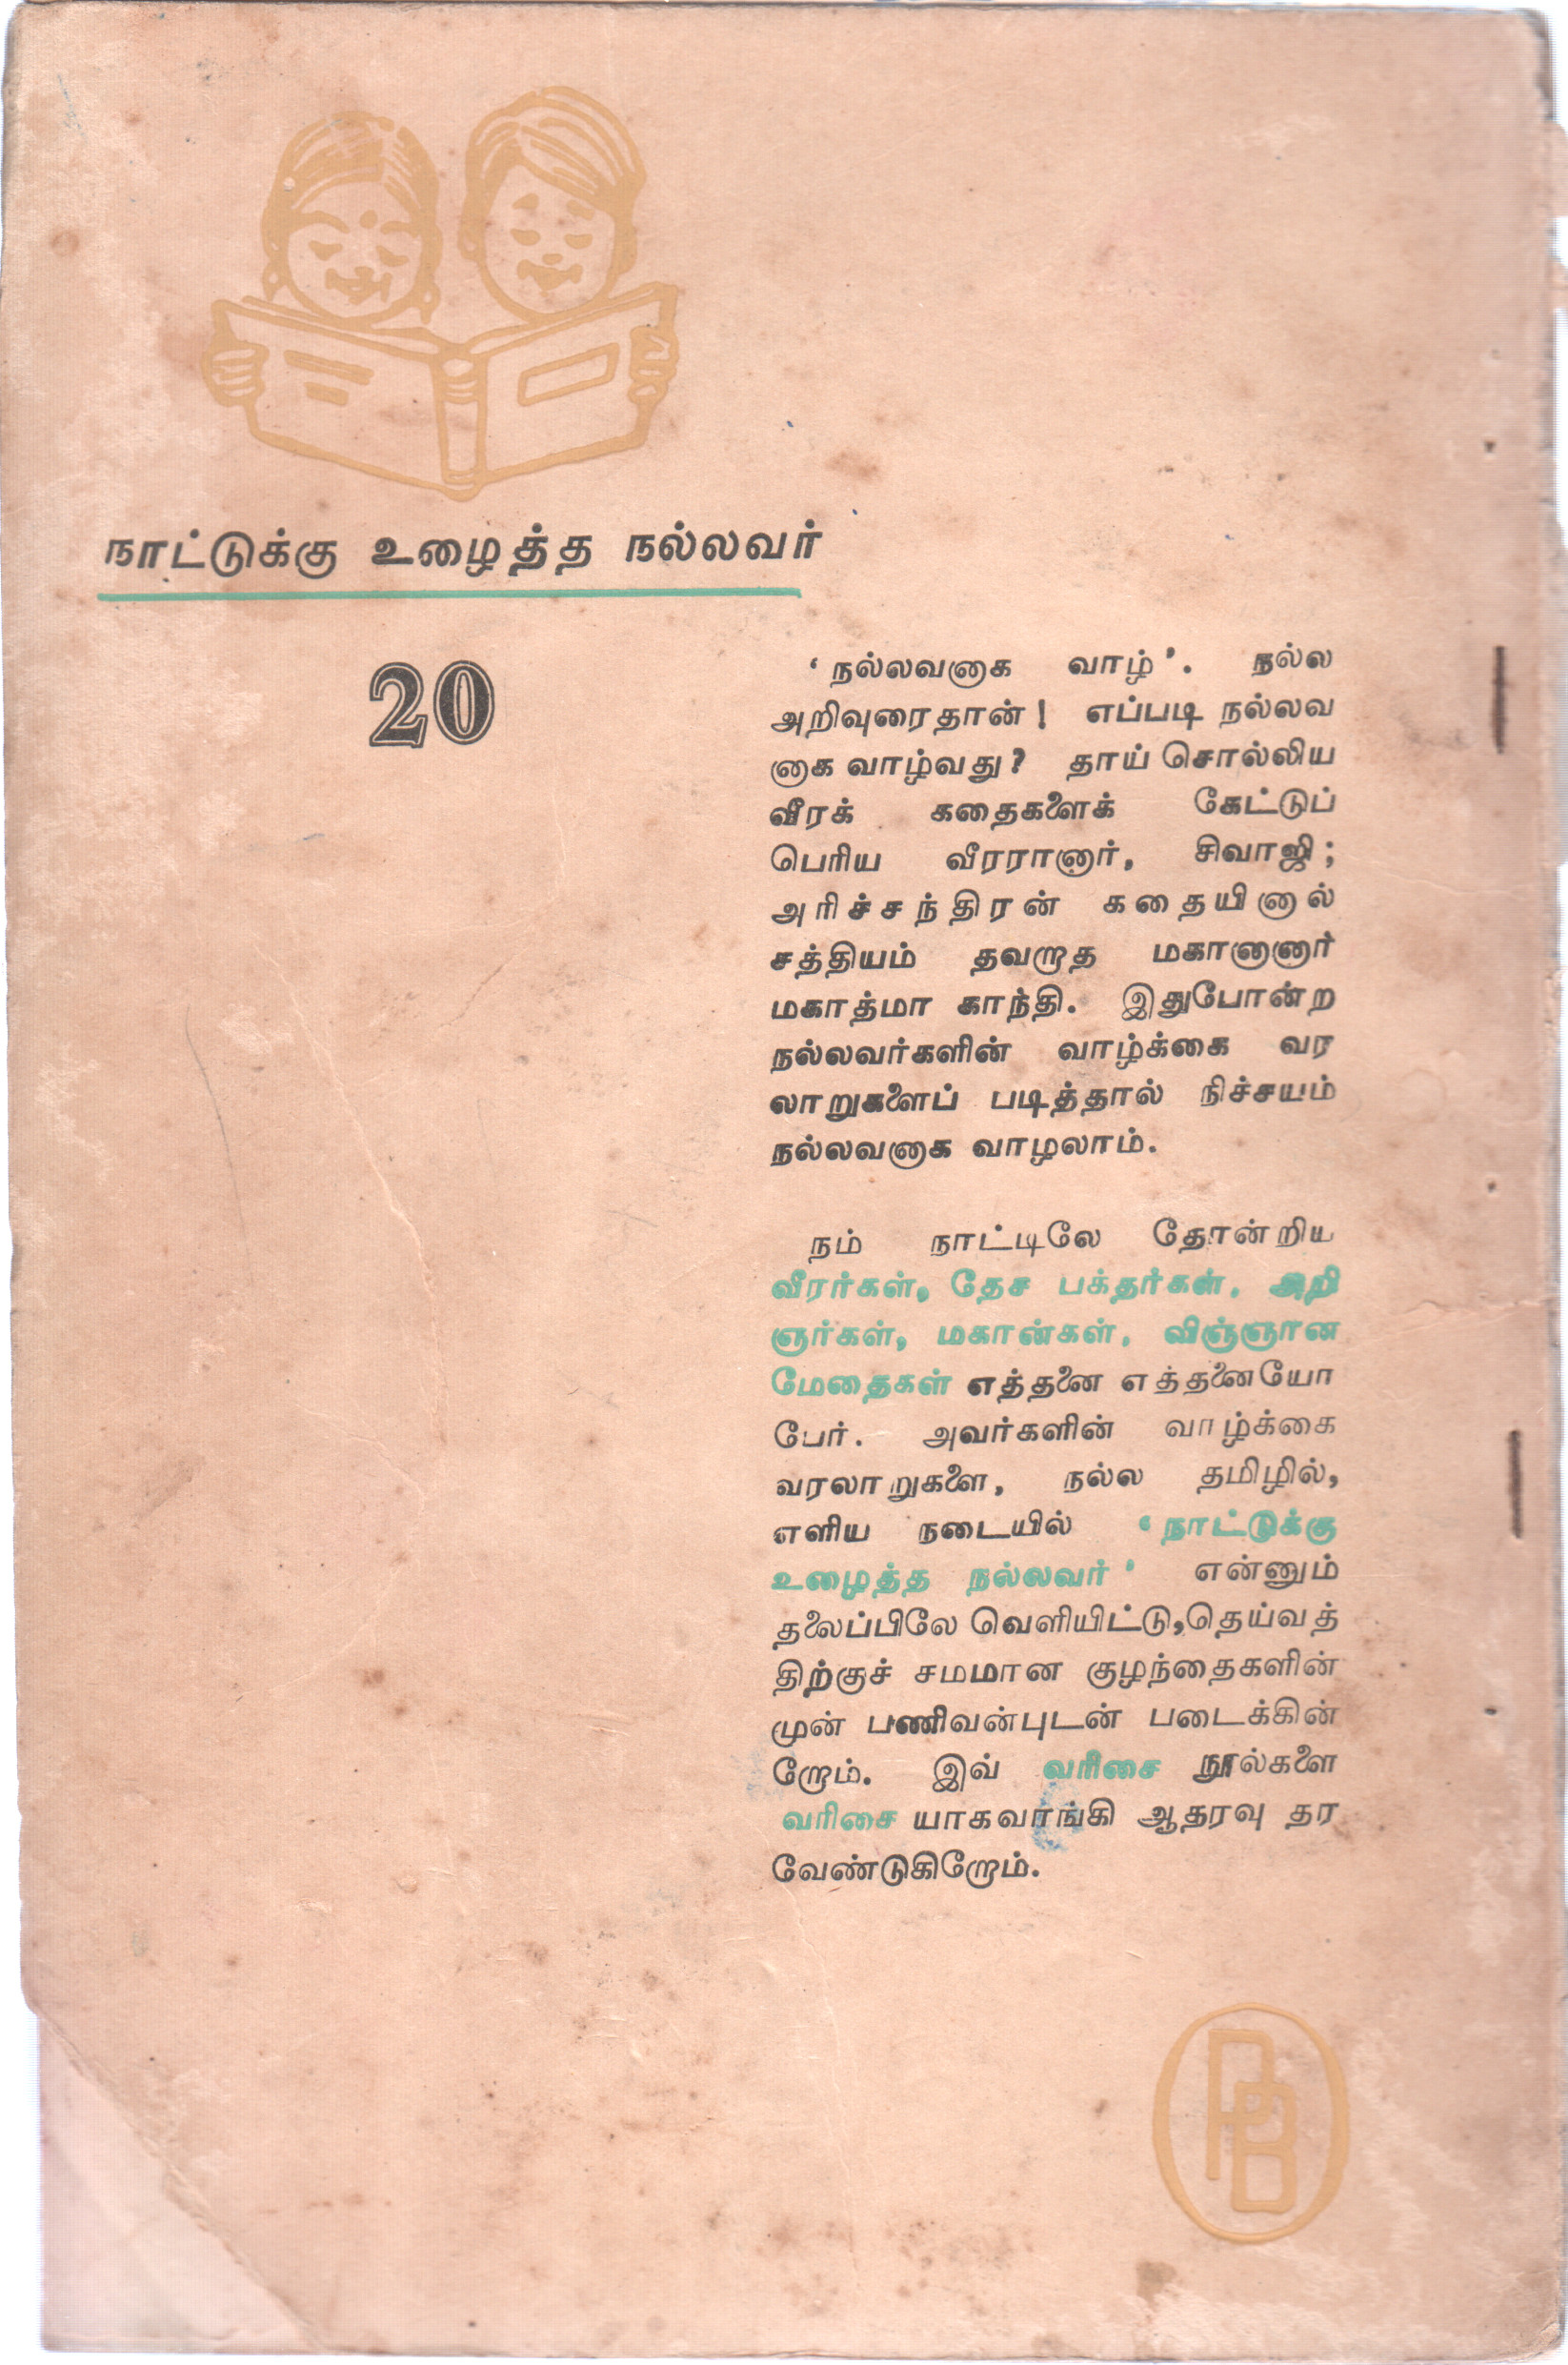 நாட்டுக்கு உழைத்த நல்லவர்
20
‘நல்லவனாக வாழ்’. நல்ல
அறிவுரைதான்! எப்படி நல்லவ
னாக வாழ்வது? தாய் சொல்லிய
வீரக் கதைகளைக் கேட்டுப்
பெரிய வீரரானார், சிவாஜி;
அரிச்சந்திரன் கதையினால்
சத்தியம் தவறாத மகானானார்
மகாத்மா காந்தி. இதுபோன்ற
நல்லவர்களின் வாழ்க்கை வர
லாறுகளைப் படித்தால் நிச்சயம்
நல்லவனாக வாழலாம்.
நம் நாட்டிலே தோன்றிய
வீரர்கள், தேச பக்தர்கள், அறி
ஞர்கள், மகான்கள், விஞ்ஞான
மேதைகள் எத்தனை எத்தனையோ
பேர். அவர்களின் வாழ்க்கை
வரலாறுகளை, நல்ல தமிழில்,
எளிய நடையில் ‘நாட்டுக்கு
உழைத்த நல்லவர்’ என்னும்
தலைப்பிலே வெளியிட்டு,தெய்வத்
திற்குச் சமமான குழந்தைகளின்
முன் பணிவன்புடன் படைக்கின்
றோம். இவ் வரிசை நூல்களை
வரிசை யாகவாங்கி ஆதரவு தர
வேண்டுகிறோம்.
PB